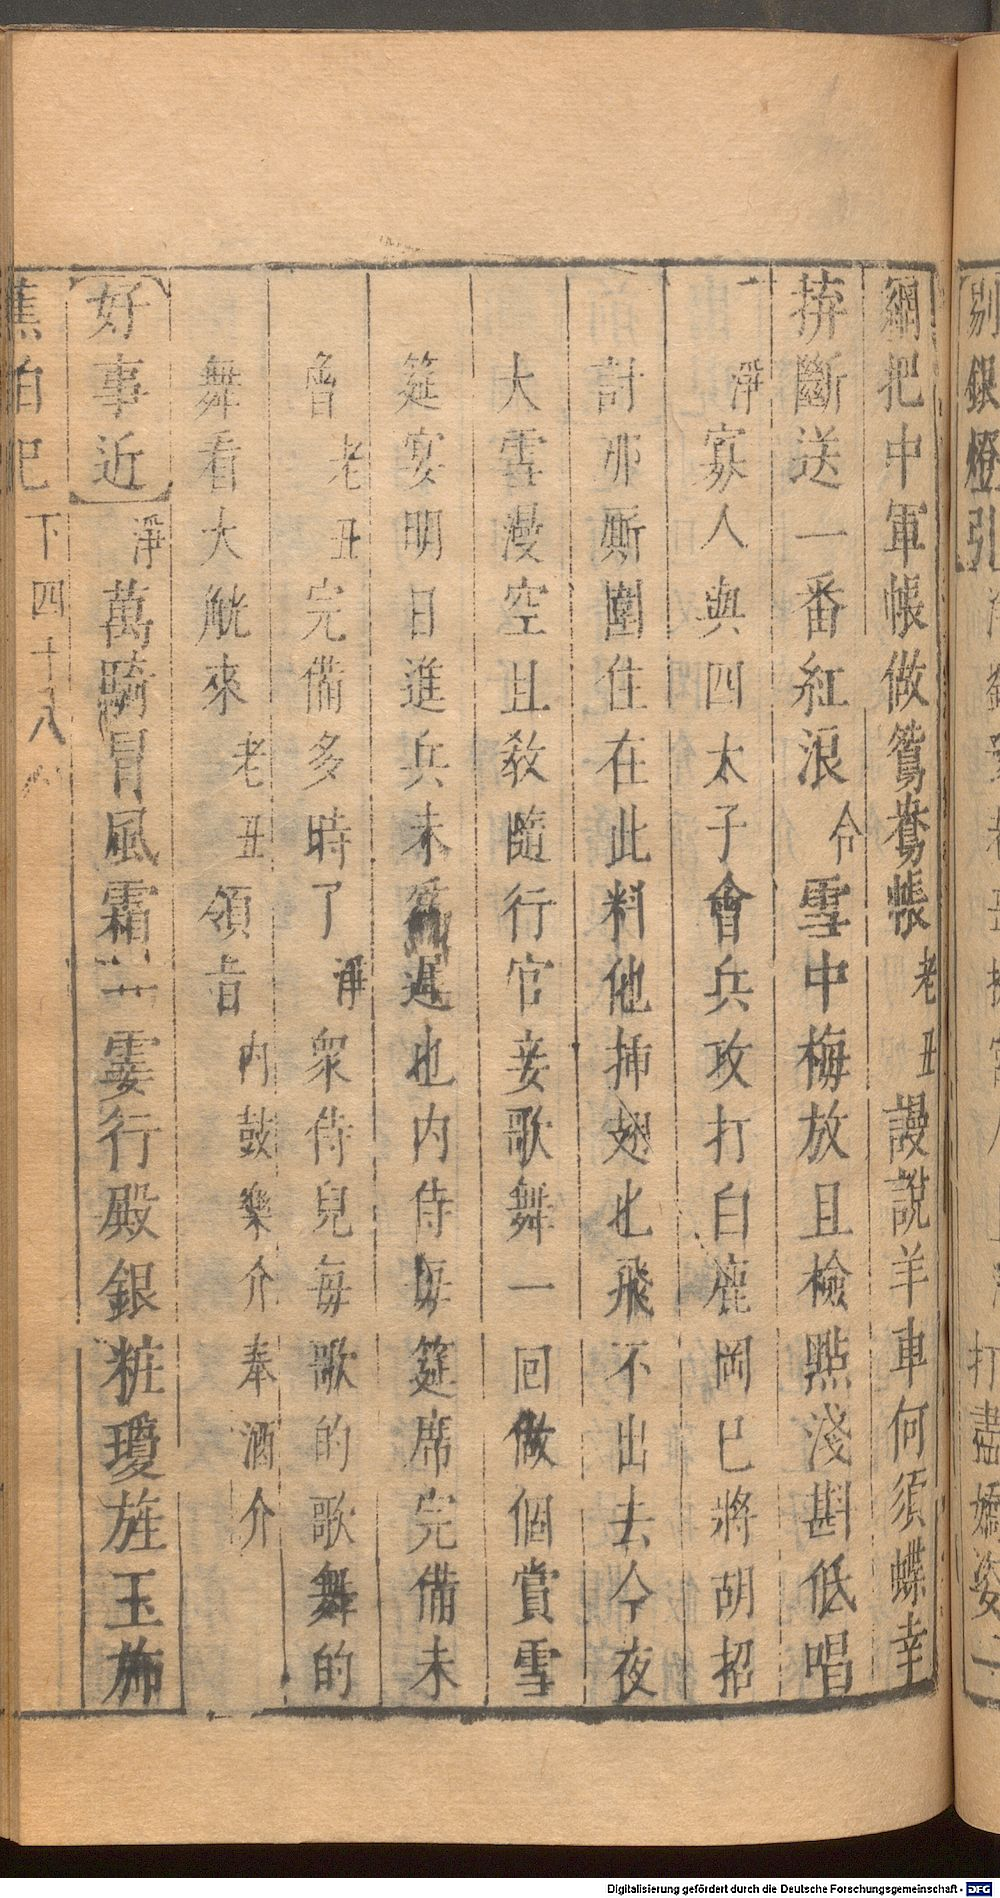 剔銀燈引
打盡嬌姿一
翻把中軍帳做鴛鴦帳老丑謾說羊車何須蝶幸
拚斷送一番紅浪合雪中梅放且檢點淺斟低唱
淨寡人與四太子會兵攻打白鹿岡已將胡招
討那厮圍住在此料他插翅也飛不出去今夜
大雪漫空且教隨行官妾歌舞一回做個賞雪
筵宴明日進兵未爲遲也內侍每筵席完備未
曾老丑完備多時了淨衆侍兒每歌的歌舞的
舞看大觥來老丑領旨內鼓樂介奉酒介
好事近淨萬騎冒風霜霎行殿銀粧瓊旌玉斾
蕉帕記
下四十八
Digitalisierung gefördert durch die Deutsche Forschungsgemeinschaft - DFG